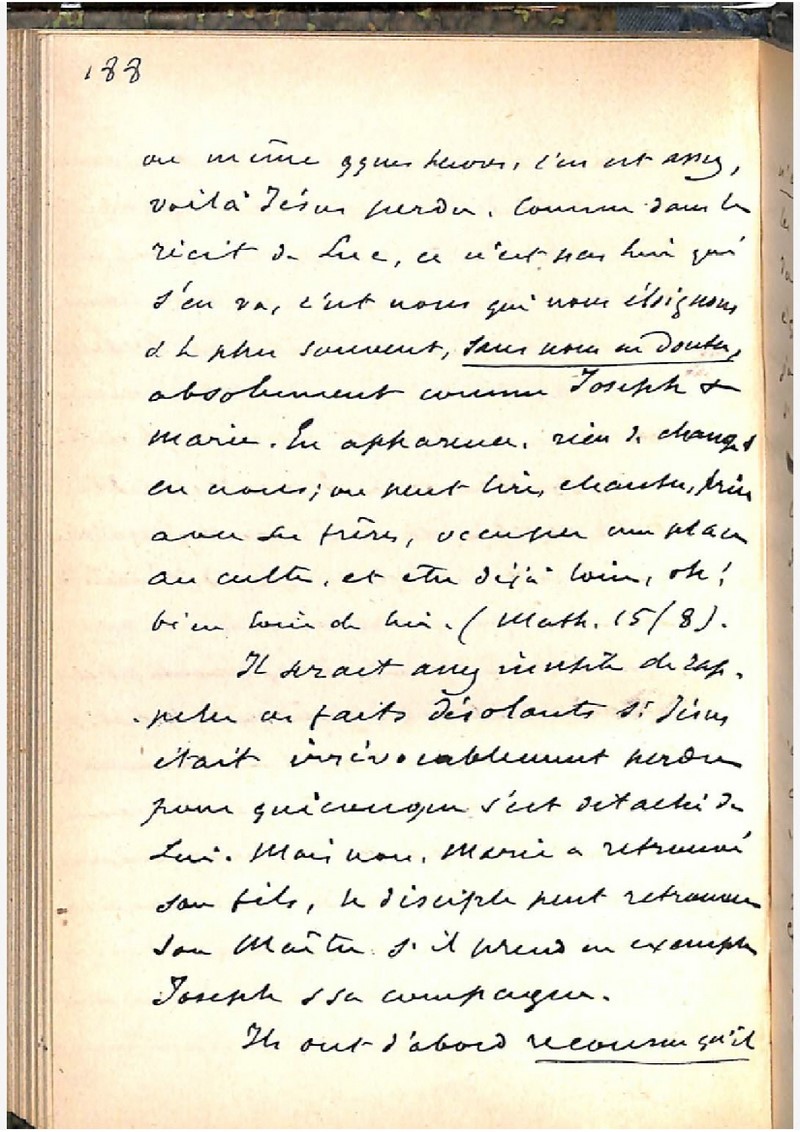 188
ou même qques heures, c'en est assez,
voilà Jésus perdu. Comme dans le
récit de Luc, ce n'est pas lui qui
s'en va, c'est nous qui nous éloignons
& le plus souvent, sans nous en douter,
absolument comme Joseph &
Marie. En apparence, rien de changé
en nous; on peut lire, chanter, prier
avec ses frères, occuper une place
au culte, et être déjà loin, oh!
bien loin de lui. (Math. 15/8).
Il serait assez inutile de rap-
peler ces faits désolants si Jésus
était irrévocablement perdu
pour quiconque s'est détaché de
Lui. Mais non. Marie a retrouvé
son fils, le disciple peut retrouver
son Maître s'il prend en exemple
Joseph & sa compagne.
Ils ont d'abord reconnu qu'il